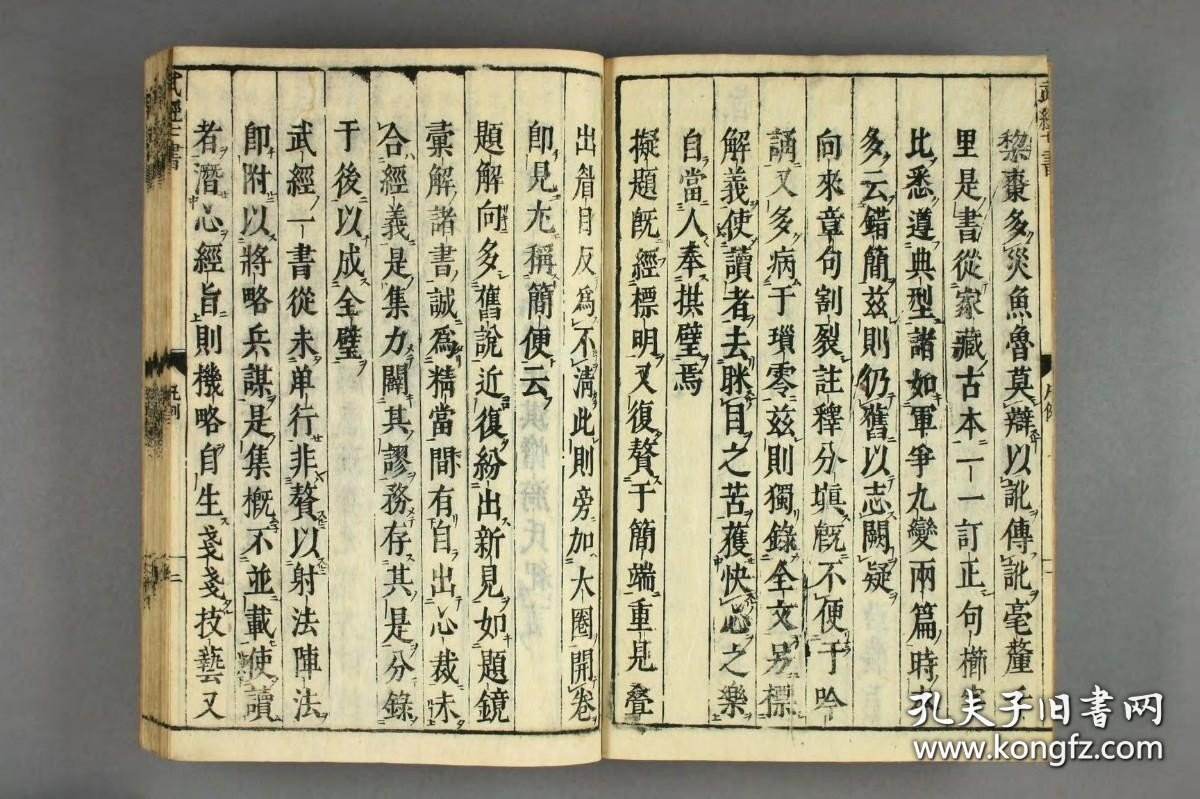 武經七書
棃棗多災魚魯莫辯以訛傳訛毫釐千
里是書從家藏古本一一訂正句櫛字
比悉遵典型諸如軍爭九變兩篇時本
多云錯簡茲則仍舊以志闕疑
向來章句割裂註釋分塡旣不便于吟
誦又多病于瑣零茲則獨錄全文另標
解義使讀者去眯目之苦獲快心之樂
自當人奉拱璧焉
擬題旣經標明又復贅于簡端重見疊
凡例
出眉目反爲不淸此則旁加大圈開卷
卽見尤稱簡便云
題解向多舊說近復紛出新見如題鏡
彙解諸書誠爲精當間有自出心裁未
合經義是集力闢其謬務存其是分錄
于後以成全璧
武經一書從未单行非贅以射法陣法
卽附以將略兵謀是集槪不並載使讀
者潛心經旨則機略自生戔戔技藝又
武經七書
凡例
二
孔夫子旧书网
www.kongfz.com